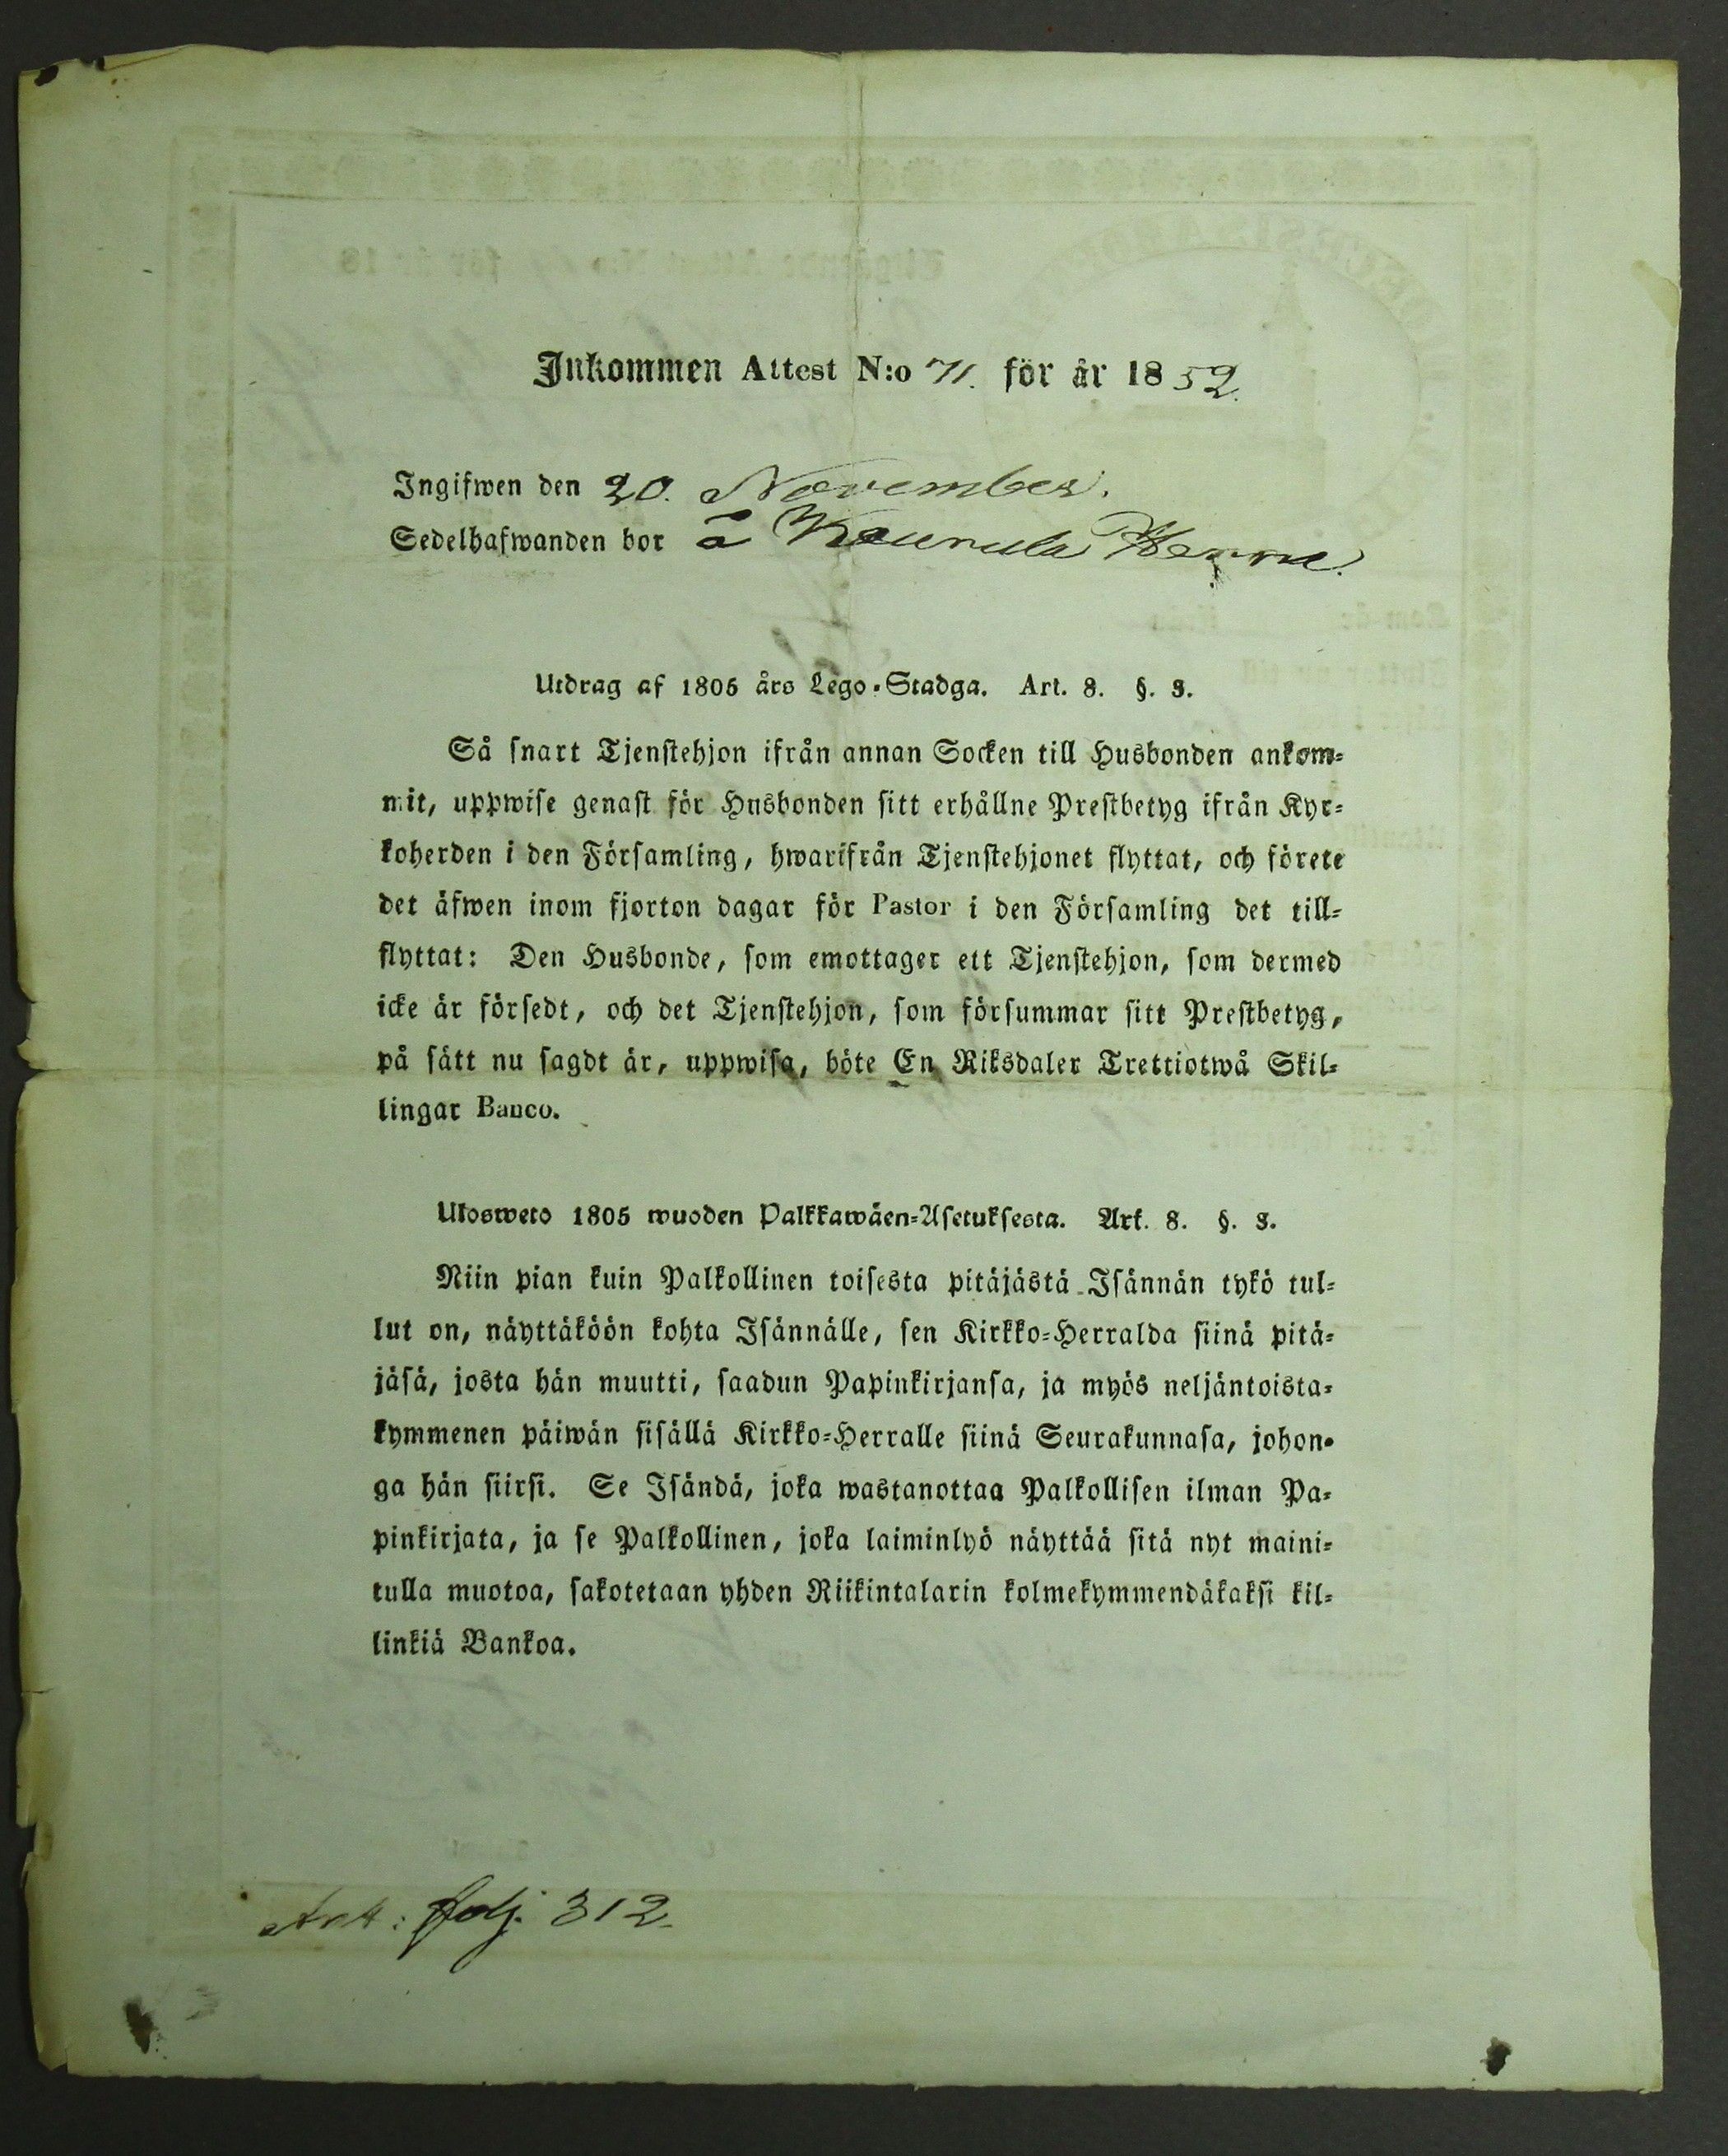 Inkommen Attest N:o 71. för år 1852.
Ingifwen den 20. November.
Sedelhafwanden bor å Kaurula Hemm.
Utdrag af 1805 års Lego-Stadga. Art. 8. §. 3.
Så snart Tjenstehjon ifrån annan Socken till Husbonden ankom-
mit, uppwise genast för Husbonden sitt erhållne Prestbetyg ifrån Kyr-
koherden i den Församling, hwarifrån Tjenstehjonet flyttat, och förete
det äfwen inom fjorton dagar för Pastor i den Församling det till-
flyttat: Den Husbonde, som emottager ett Tjenstehjon, som dermed
icke är försedt, och det Tjenstehjon, som försummar sitt Prestbetyg,
på sätt nu sagdt är, uppwisa, böte En Riksdaler Trettiotwå Skil-
lingar Banco.
Ulosweto 1805 wuoden Palkkawäen-Asetuksesta. Art. 8. §. 3.
Niin pian kuin Palkollinen toisesta pitäjästä Isännän tykö tul-
lut on, näyttäköön kohta Isännälle, sen Kirkko-Herralda siinä pitä-
jäsä, josta hän muutti, saadun Papinkirjansa, ja myös neljäntoista-
kymmenen päiwän sisällä Kirkko-Herralle siinä Seurakunnasa, johon-
ga hän siirsi. Se Isändä, joka wastanottaa Palkollisen ilman Pa-
pinkirjata, ja se Palkollinen, joka laiminlyö näyttää sitä nyt maini-
tulla muotoa, sakotetaan yhden Riikintalarin kolmekymmendäkaksi kil-
linkiä Bankoa.
Ant: folj. 312.